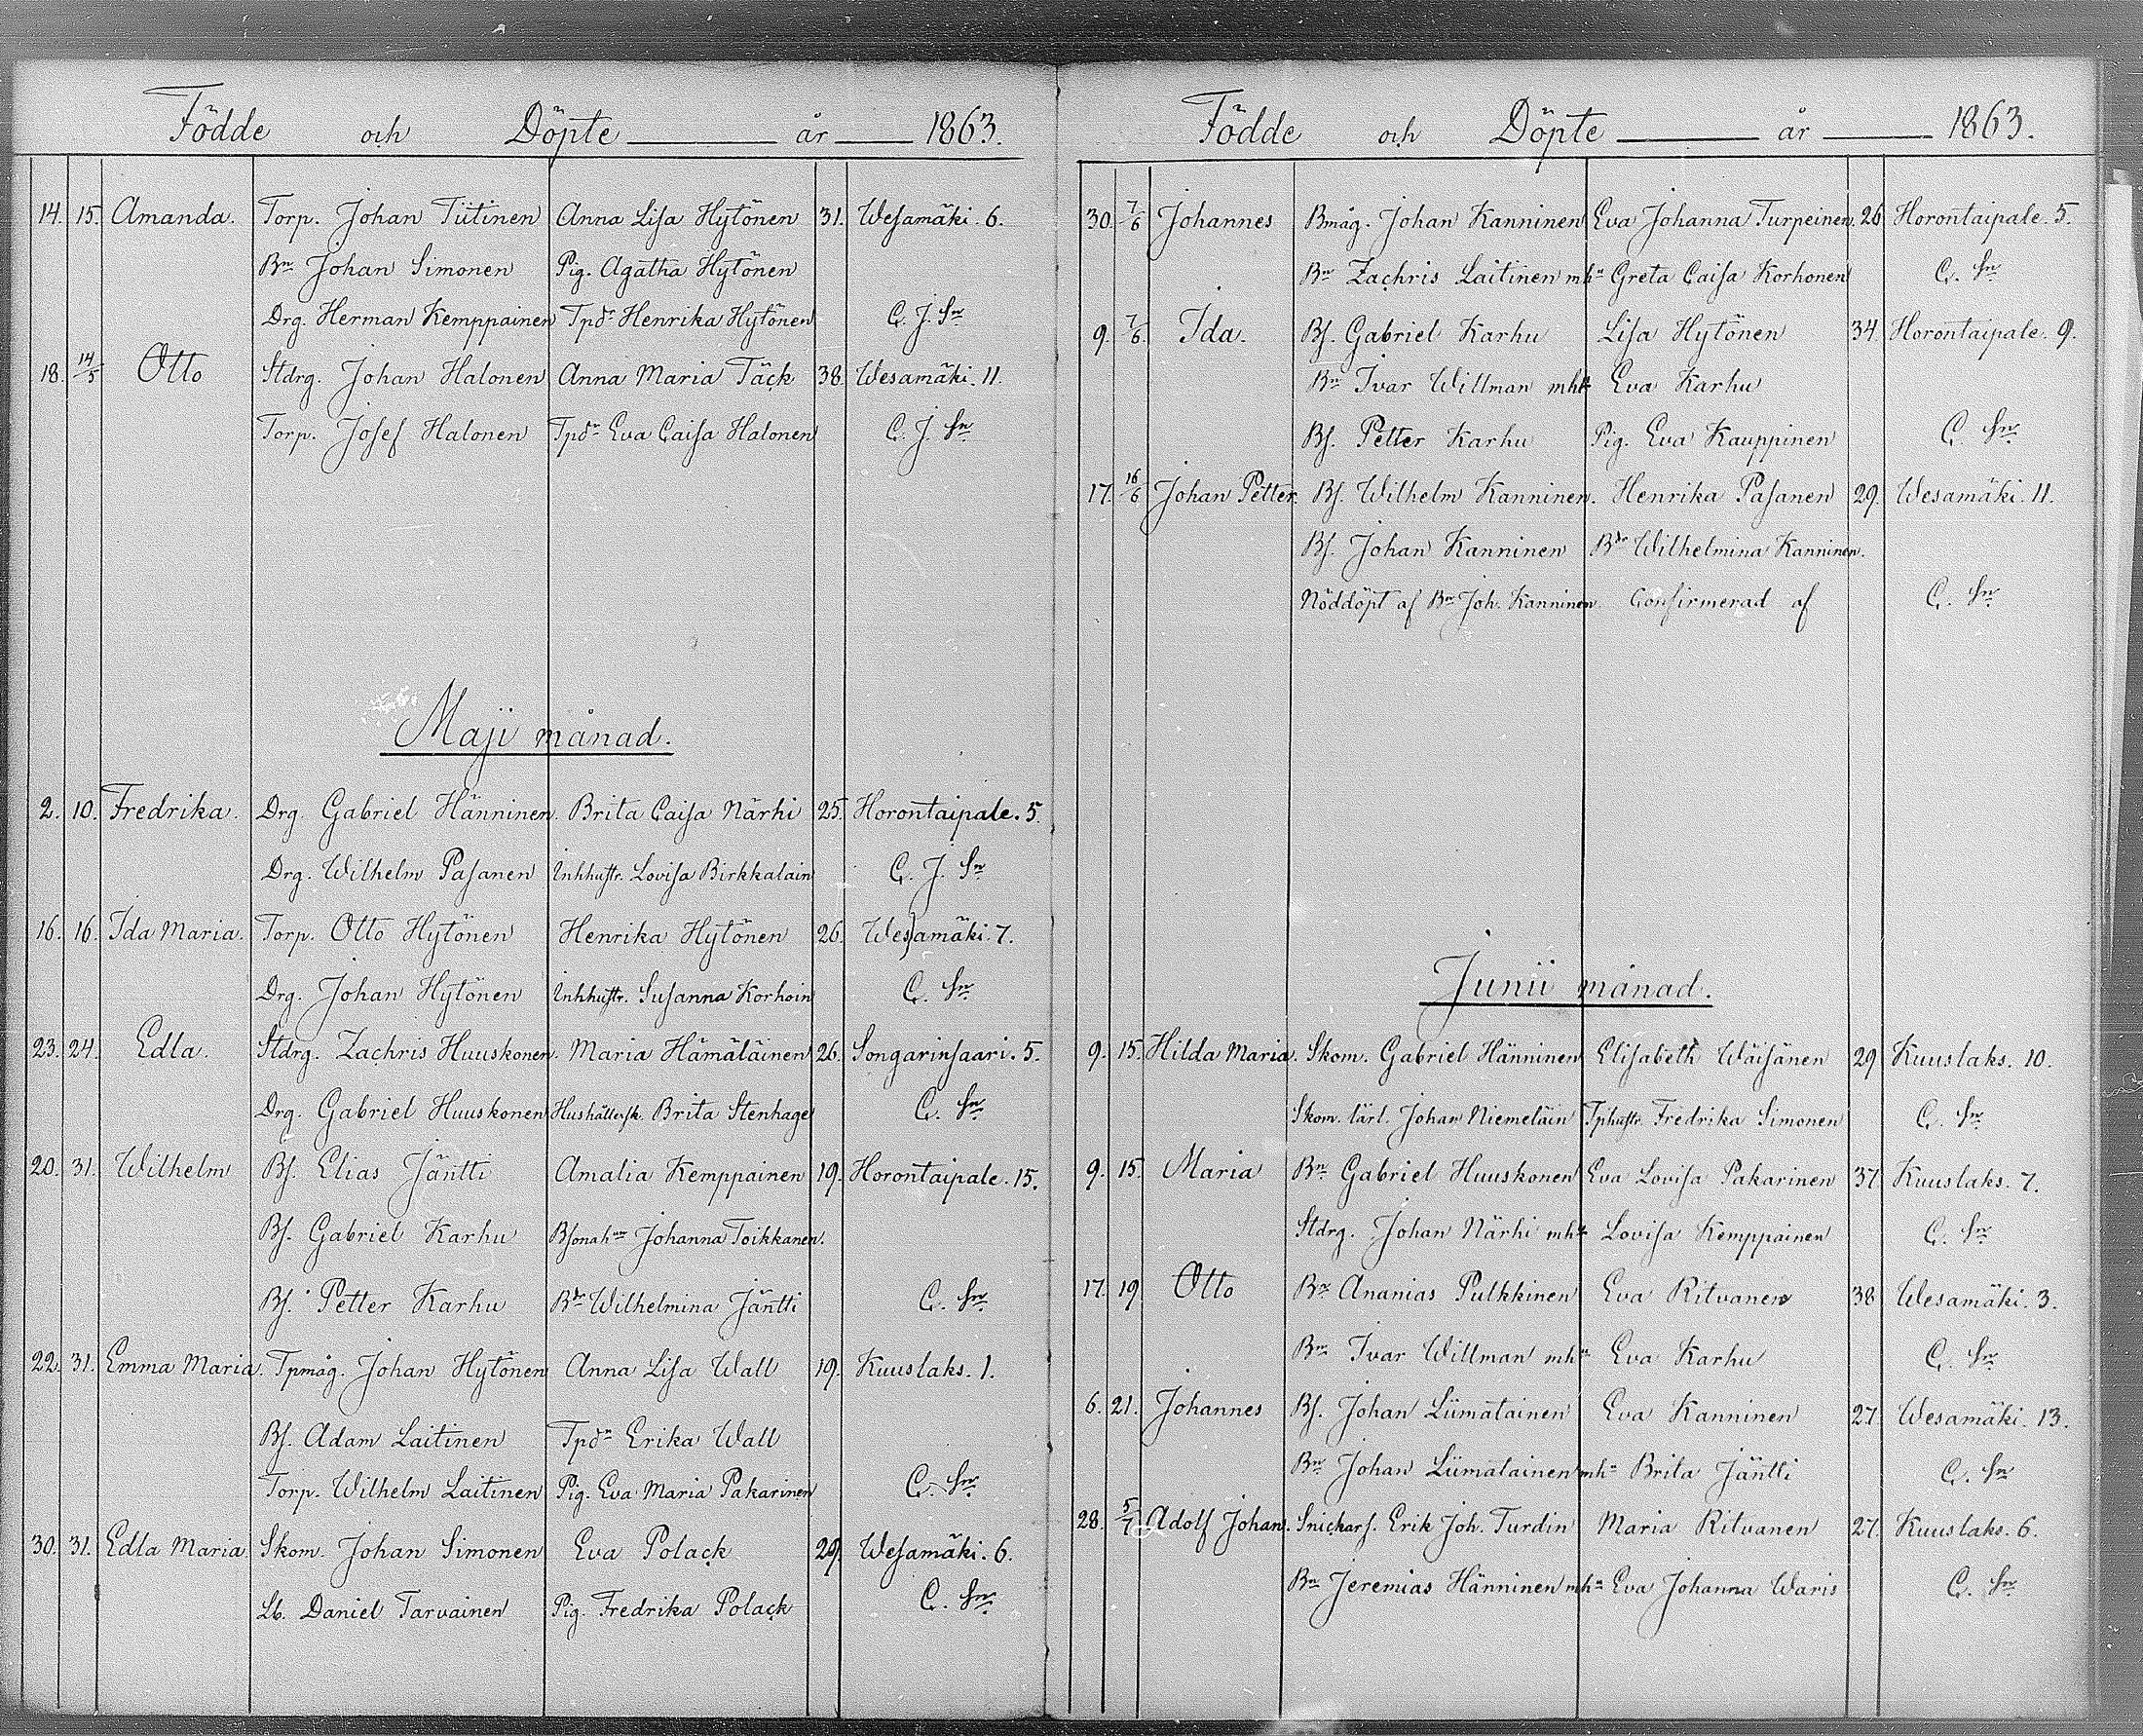 Födde och Döpte år 1863.
14. 15. Amanda. Torp. Johan Tiitinen Anna Lisa Hytönen 31. Wesamäki. 6.
Bn Johan Simonen Pig. Agatha Hytönen
Drg. Herman Kemppainen Tpdr Henrika Hytönen C. J. Sn
18. 14/5 Otto Stdrg. Johan Halonen Anna Maria Täck 38. Wesamäki. 11.
Torp. Josef Halonen Tpdr Eva Caisa Halonen C. J. Sn
Maji månad.
2. 10. Fredrika. Drg. Gabriel Hänninen. Brita Caisa Närhi 25. Horontaipale. 5.
Drg. Wilhelm Pasanen Inhhustr. Lovisa Birkkalain C. J. Sn
16. 16. Ida Maria. Torp. Otto Hytönen Henrika Hytönen 26. Wesamäki. 7.
Drg. Johan Hytönen Inhhustr. Susanna Korhoin C. Sn
23. 24. Edla. Stdrg. Zachris Huuskonen. Maria Hämäläinen 26. Songarinsaari. 5.
Drg. Gabriel Huuskonen Hushållersk. Brita Stenhage C. Sn
20. 31. Wilhelm Bs. Elias Jäntti Amalia Kemppainen 19. Horontaipale. 15.
Bs. Gabriel Karhu Bsonahun Johanna Toikkanen.
Bs. Petter Karhu Bdr Wilhelmina Jäntti C. Sn
22. 31. Emma Maria. Tpmåg. Johan Hytönen Anna Lisa Wall 19. Kuuslaks. 1.
Bs. Adam Laitinen Tpdr Erika Wall
Torp. Wilhelm Laitinen Pig. Eva Maria Pakarinen C. Sn
30. 31. Edla Maria Skom. Johan Simonen Eva Polack 29. Wesamäki. 6.
Lb. Daniel Tarvainen Pig. Fredrika Polack C. Sn
Födde och Döpte år 1863.
30. 7/6 Johannes Bmåg. Johan Kanninen Eva Johanna Turpeinen. 26 Horontaipale. 5.
Bn Zachris Laitinen mhu Greta Caisa Korhonen C. Sn
9. 7/6. Ida. Bs. Gabriel Karhu Lisa Hytönen 34. Horontaipale. 9.
Bn Ivar Willman mhu Eva Karhu
Bs. Petter Karhu Pig. Eva Kauppinen C. Sn
17. 16/6 Johan Petter. Bs. Wilhelm Kanninen. Henrika Pasanen 29. Wesamäki. 11.
Bs. Johan Kanninen Bdr Wilhelmina Kanninen.
Nöddöpt af Bn Joh. Kanninen. Confirmerad af C. Sn
Junii månad.
9. 15. Hilda Maria. Skom. Gabriel Hänninen Elisabeth Wäisänen 29 Kuuslaks. 10.
Skom. lärl. Johan Niemeläin Tphustr. Fredrika Simonen C. Sn
9. 15. Maria Bn Gabriel Huuskonen Eva Lovisa Pakarinen 37 Kuuslaks. 7.
Stdrg. Johan Närhi mhu Lovisa Kemppainen C. Sn
17. 19. Otto Bn Ananias Pulkkinen Eva Ritvanen 38 Wesamäki. 3.
Bn Ivar Willman mhu Eva Karhu C. Sn
6. 21. Johannes Bs. Johan Liimatainen Eva Kanninen 27. Wesamäki. 13.
Bn Johan Liimatainen mhu Brita Jäntti C. Sn
28. 5/7 Adolf Johan. Snickars. Erik Joh. Turdin Maria Ritvanen 27. Kuuslaks. 6.
Bn Jeremias Hänninen mhu Eva Johanna Waris C. Sn